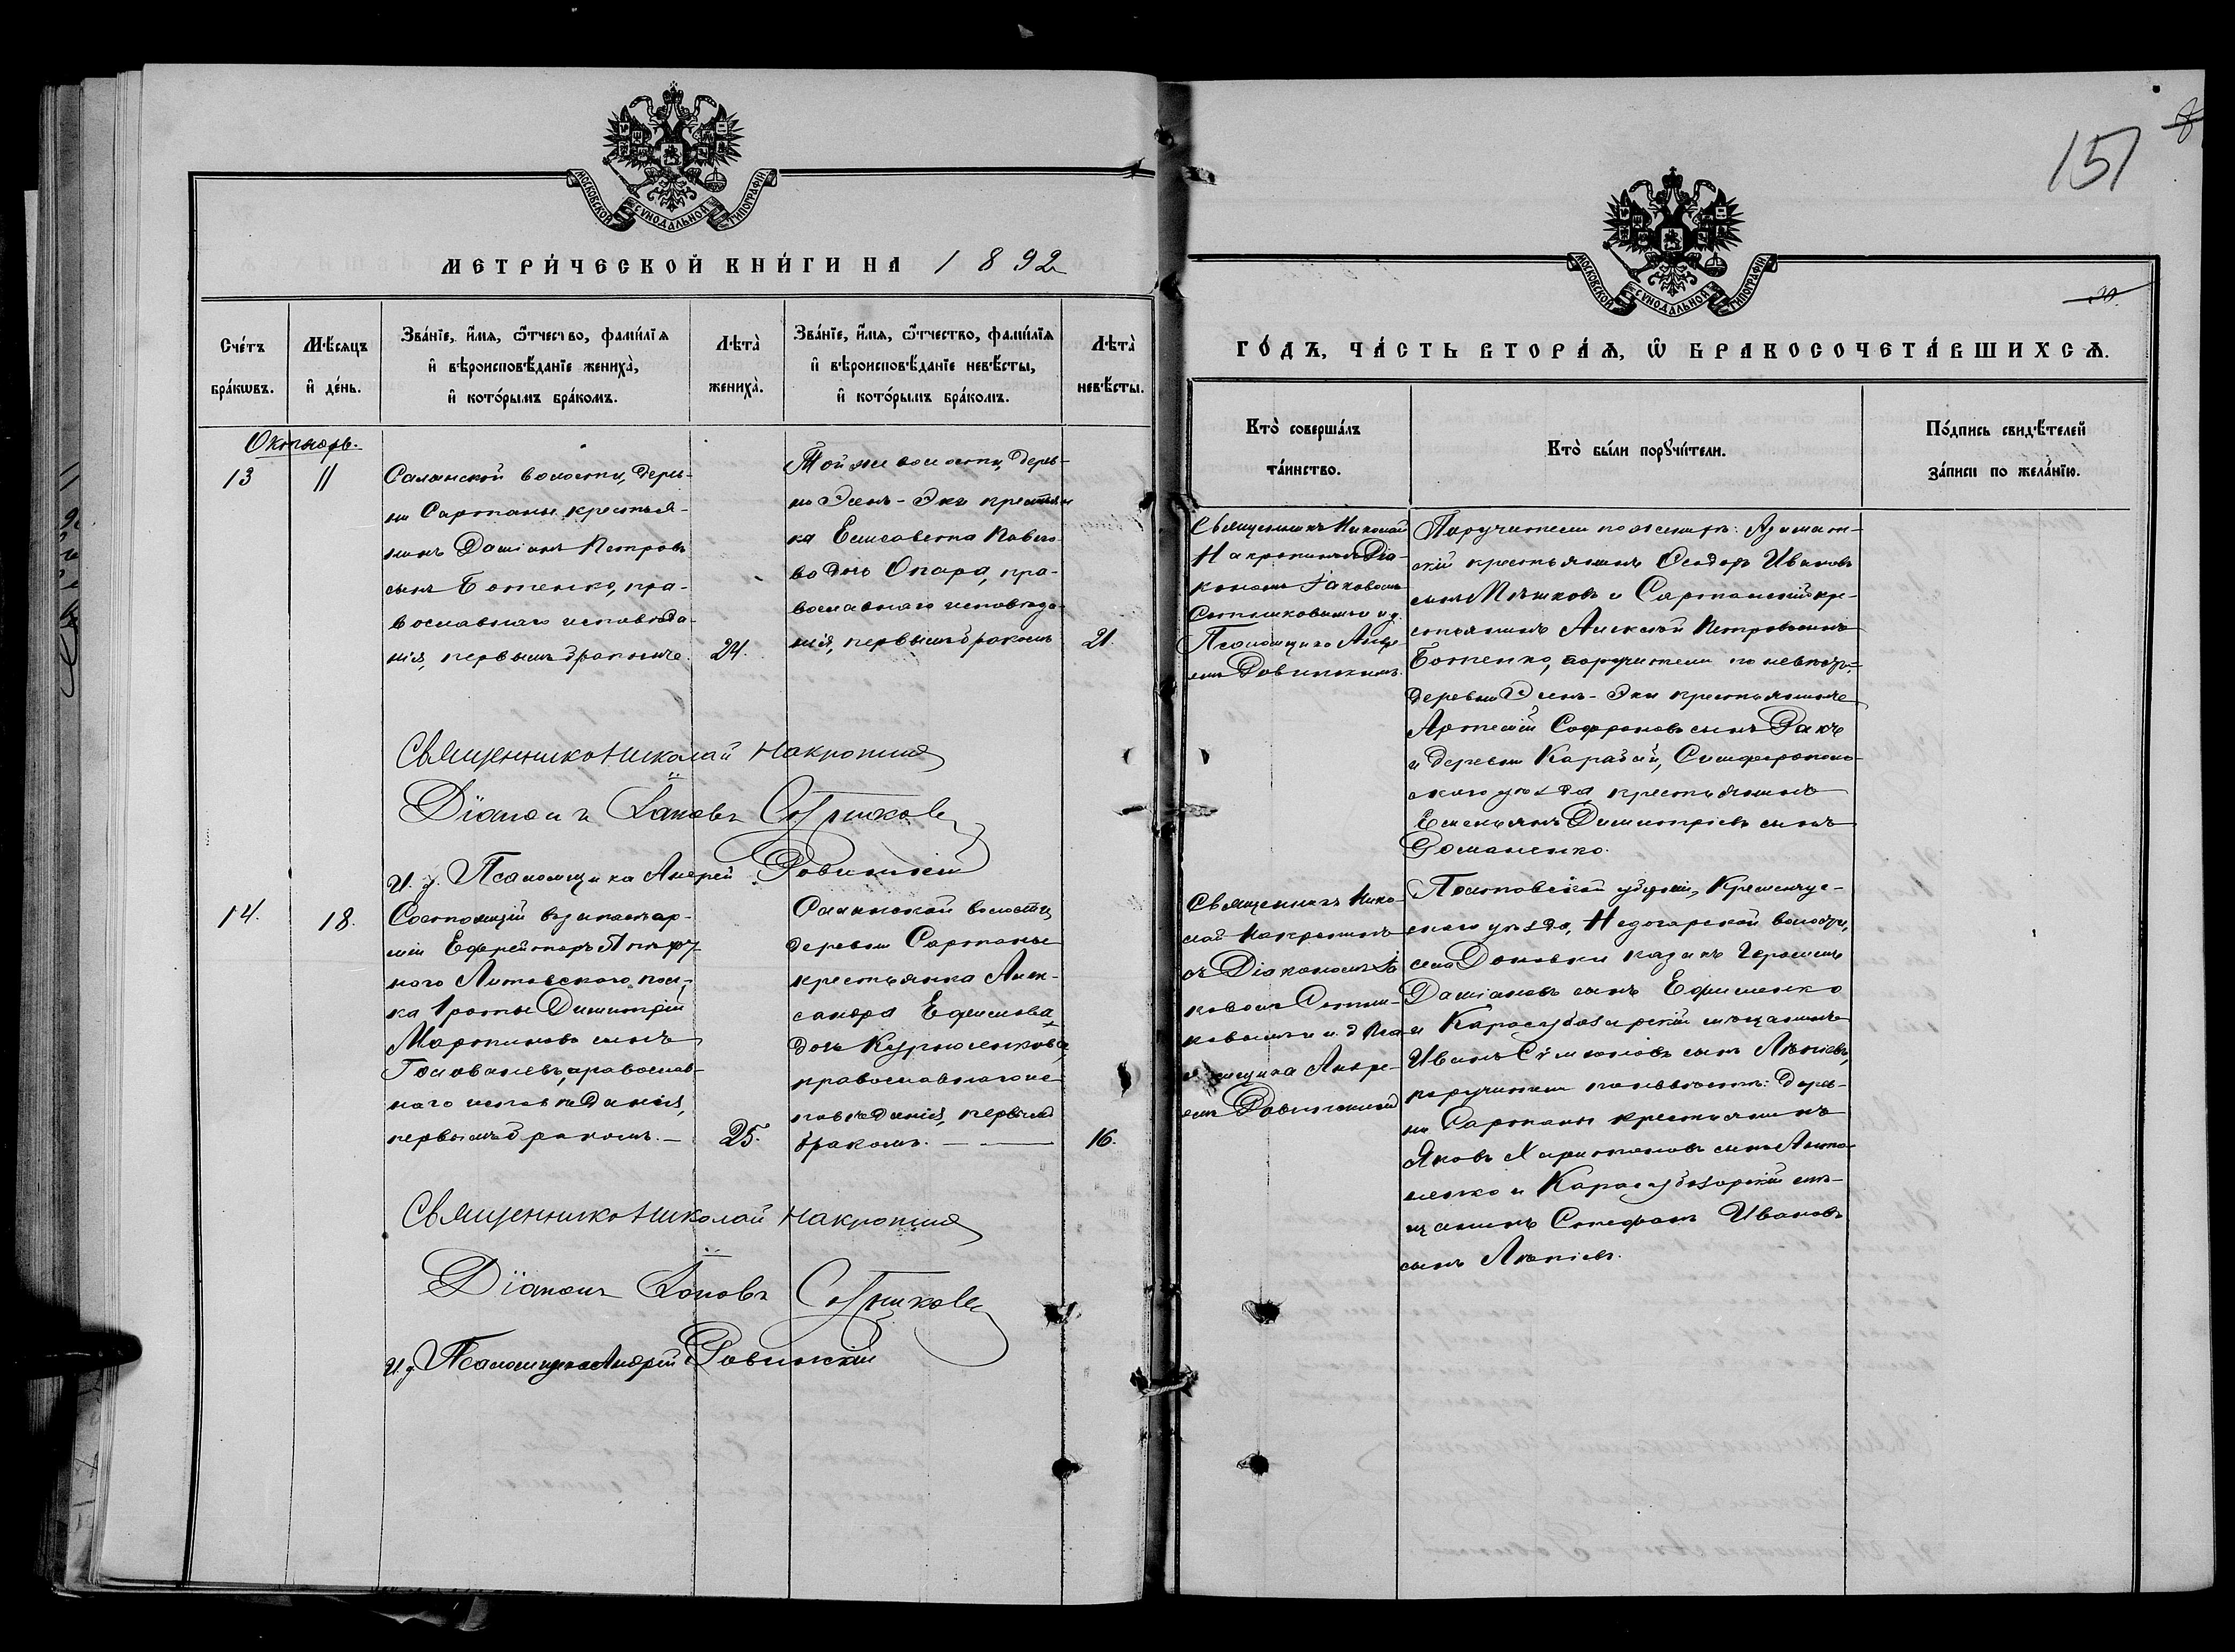 МОСКОВСКОЙ СУНОДАЛЬНОЙ ТИПОГРАФІИ
МЕТРИ́ЧЕСКОЙ КНИ́ГИ НА 1892
Сче́тъ бра́кѡвъ.
Мѣ́сяцъ и҆ де́нь.
Зва́нїе, и҆́мя, ѻ҆́тчество, фами́лїя
и҆ вѣроисповѣ́данїе жениха̀,
и҆ кото́рымъ бра́комъ.
Лѣта̀ жениха̀.
Зва́нїе, и҆́мя, ѻ҆́тчество, фами́лїя
и҆ вѣроисповѣ́данїе невѣ́сты,
и҆ кото́рымъ бра́комъ.
Лѣта̀ невѣ́сты.
Октябрь.
13
11
Салынской волости, дерев-
ни Сартаны крестья-
нинъ Даміанъ Петровъ
сынъ Ботенко, пра-
вославнаго исповѣда-
нія, первымъ бракомъ
24.
Той же волости, дерев-
ни Эсенъ-Эки крестьян
ка Елисавета Павло-
ва дочь Опара, пра-
вославнаго исповѣда-
нія, первымъ бракомъ
21.
Священникъ Николай Накропинъ
Діаконъ Іаковъ Сотниковъ
И. д. Псаломщика Андрей Ровинскій
14.
18.
Состоящій въ запасѣ ар-
міи Ефрейторъ
наго Литовскаго пол-
ка 1 роты Димитрій
Мартиновъ сынъ
Головачевъ, православ-
наго исповѣданія,
первымъ бракомъ.
25.
Салынской волости,
деревни Сартаны
крестьянка Алек-
сандра Ефимова
дочь
православнаго ис-
повѣданія, первымъ
бракомъ.
16.
Священникъ Николай Накропинъ
Діаконъ Іаковъ Сотниковъ
И. д. Псаломщика Андрей Ровинскій
151
МОСКОВСКОЙ СУНОДАЛЬНОЙ ТИПОГРАФІИ
ГО́ДЪ, ЧА́СТЬ ВТОРА́Ѧ, Ѡ҆ БРАКОСОЧЕТА́ВШИХСѦ.
Кто̀ соверша́лъ
та́инство.
Кто̀ бы́ли порꙋчи́тели.
По́дпись свидѣ́телей
за́писи по жела́нїю.
Священникъ Николай
Накропинъ съ Діа-
кономъ Іаковомъ
Сотниковымъ и и. д.
Псаломщика Андре-
емъ Ровинскимъ.
Поручители по женихѣ: Азамат-
скій крестьянинъ Ѳеодоръ Ивановъ
сынъ Мѣшковъ и Сартанскій кре-
стьянинъ Алексѣй Петровъ сынъ
Ботенко, поручители по невѣстѣ:
деревни Эсенъ-Эки крестьянинъ
Артемій Софроновъ сынъ Ракъ
и деревни Карабай, Симферополь-
скаго уѣзда крестьянинъ
Емельянъ Димитріевъ сынъ
Романенко.
Священникъ Нико-
лай Накропинъ
съ Діакономъ Іа
ковомъ Сотни-
ковымъ и и. д. Пса
ломщика Андре-
емъ Ровинскимъ
Полтавской губерніи, Кременчуг-
скаго уѣзда, волости,
села казакъ Герасимъ
Даміановъ сынъ Ефименко
и Карасубазарскій мѣщанинъ
Иванъ Сѵмеоновъ сынъ
поручители по невѣстѣ: дерев-
ни Сартаны крестьянинъ
Яковъ Харитоновъ сынъ Анто-
ненко и Карасубазарскій мѣ-
щанинъ Стефанъ Ивановъ
сынъ